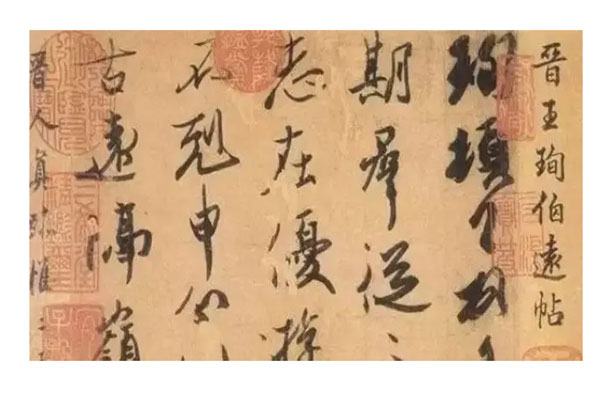 晉王珣伯遠帖
珣頓首頓首
期羣從
志在優遊
不剋申分別
古遠隔嶺
晉人真跡惟二